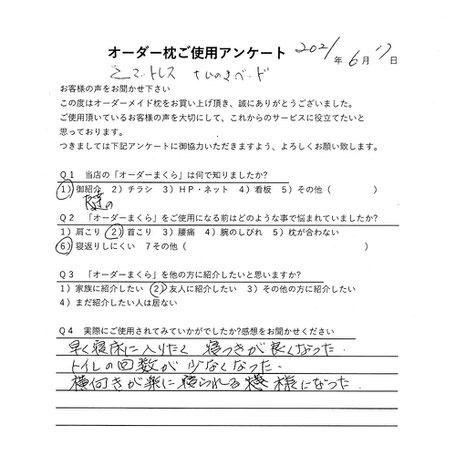 オーダー枕ご使用アンケート 2021年6月17日
とマットレス すのきベード
お客様の声をお聞かせ下さい
この度はオーダーメイド枕をお買い上げ頂き、誠にありがとうございました。
ご使用頂いているお客様の声を大切にして、これからのサービスに役立てたいと
思っております。
つきましては下記アンケートに御協力いただきますよう、よろしくお願い致します。
Q1 当店の「オーダーまくら」は何で知りましたか?
1)御紹介 2)チラシ 3)HP・ネット 4)看板 5)その他( )
Q2 「オーダーまくら」をご使用になる前はどのような事で悩まれていましたか?
1)肩こり 2)首こり 3)腰痛 4)腕のしびれ 5)枕が合わない
6)寝返りしにくい 7その他( )
Q3 「オーダーまくら」を他の方に紹介したいと思いますか?
1)家族に紹介したい 2)友人に紹介したい 3)その他の方に紹介したい
4)まだ紹介したい人は居ない
Q4 実際にご使用されてみていかがでしたか?感想をお聞かせください
早く寝床に入りたく 寝つきが良くなった.
トイレの回数が少なくなった.
横向きが楽に寝られる様になった.